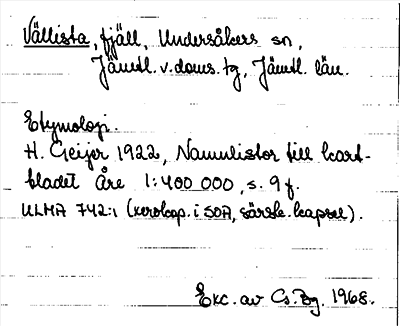 Vällista, fjäll, Undersåkers sn,
Jämtl. v. doms. tg, Jämtl. län.
Etymologi.
H. Geijer 1922, Namnlistor till kart-
bladet Åre 1:400 000, s. 9 f.
ULMA 742:1 (xerokop. i SOA, särsk. kapsel).
Exc. av Cs. Bg. 1968.